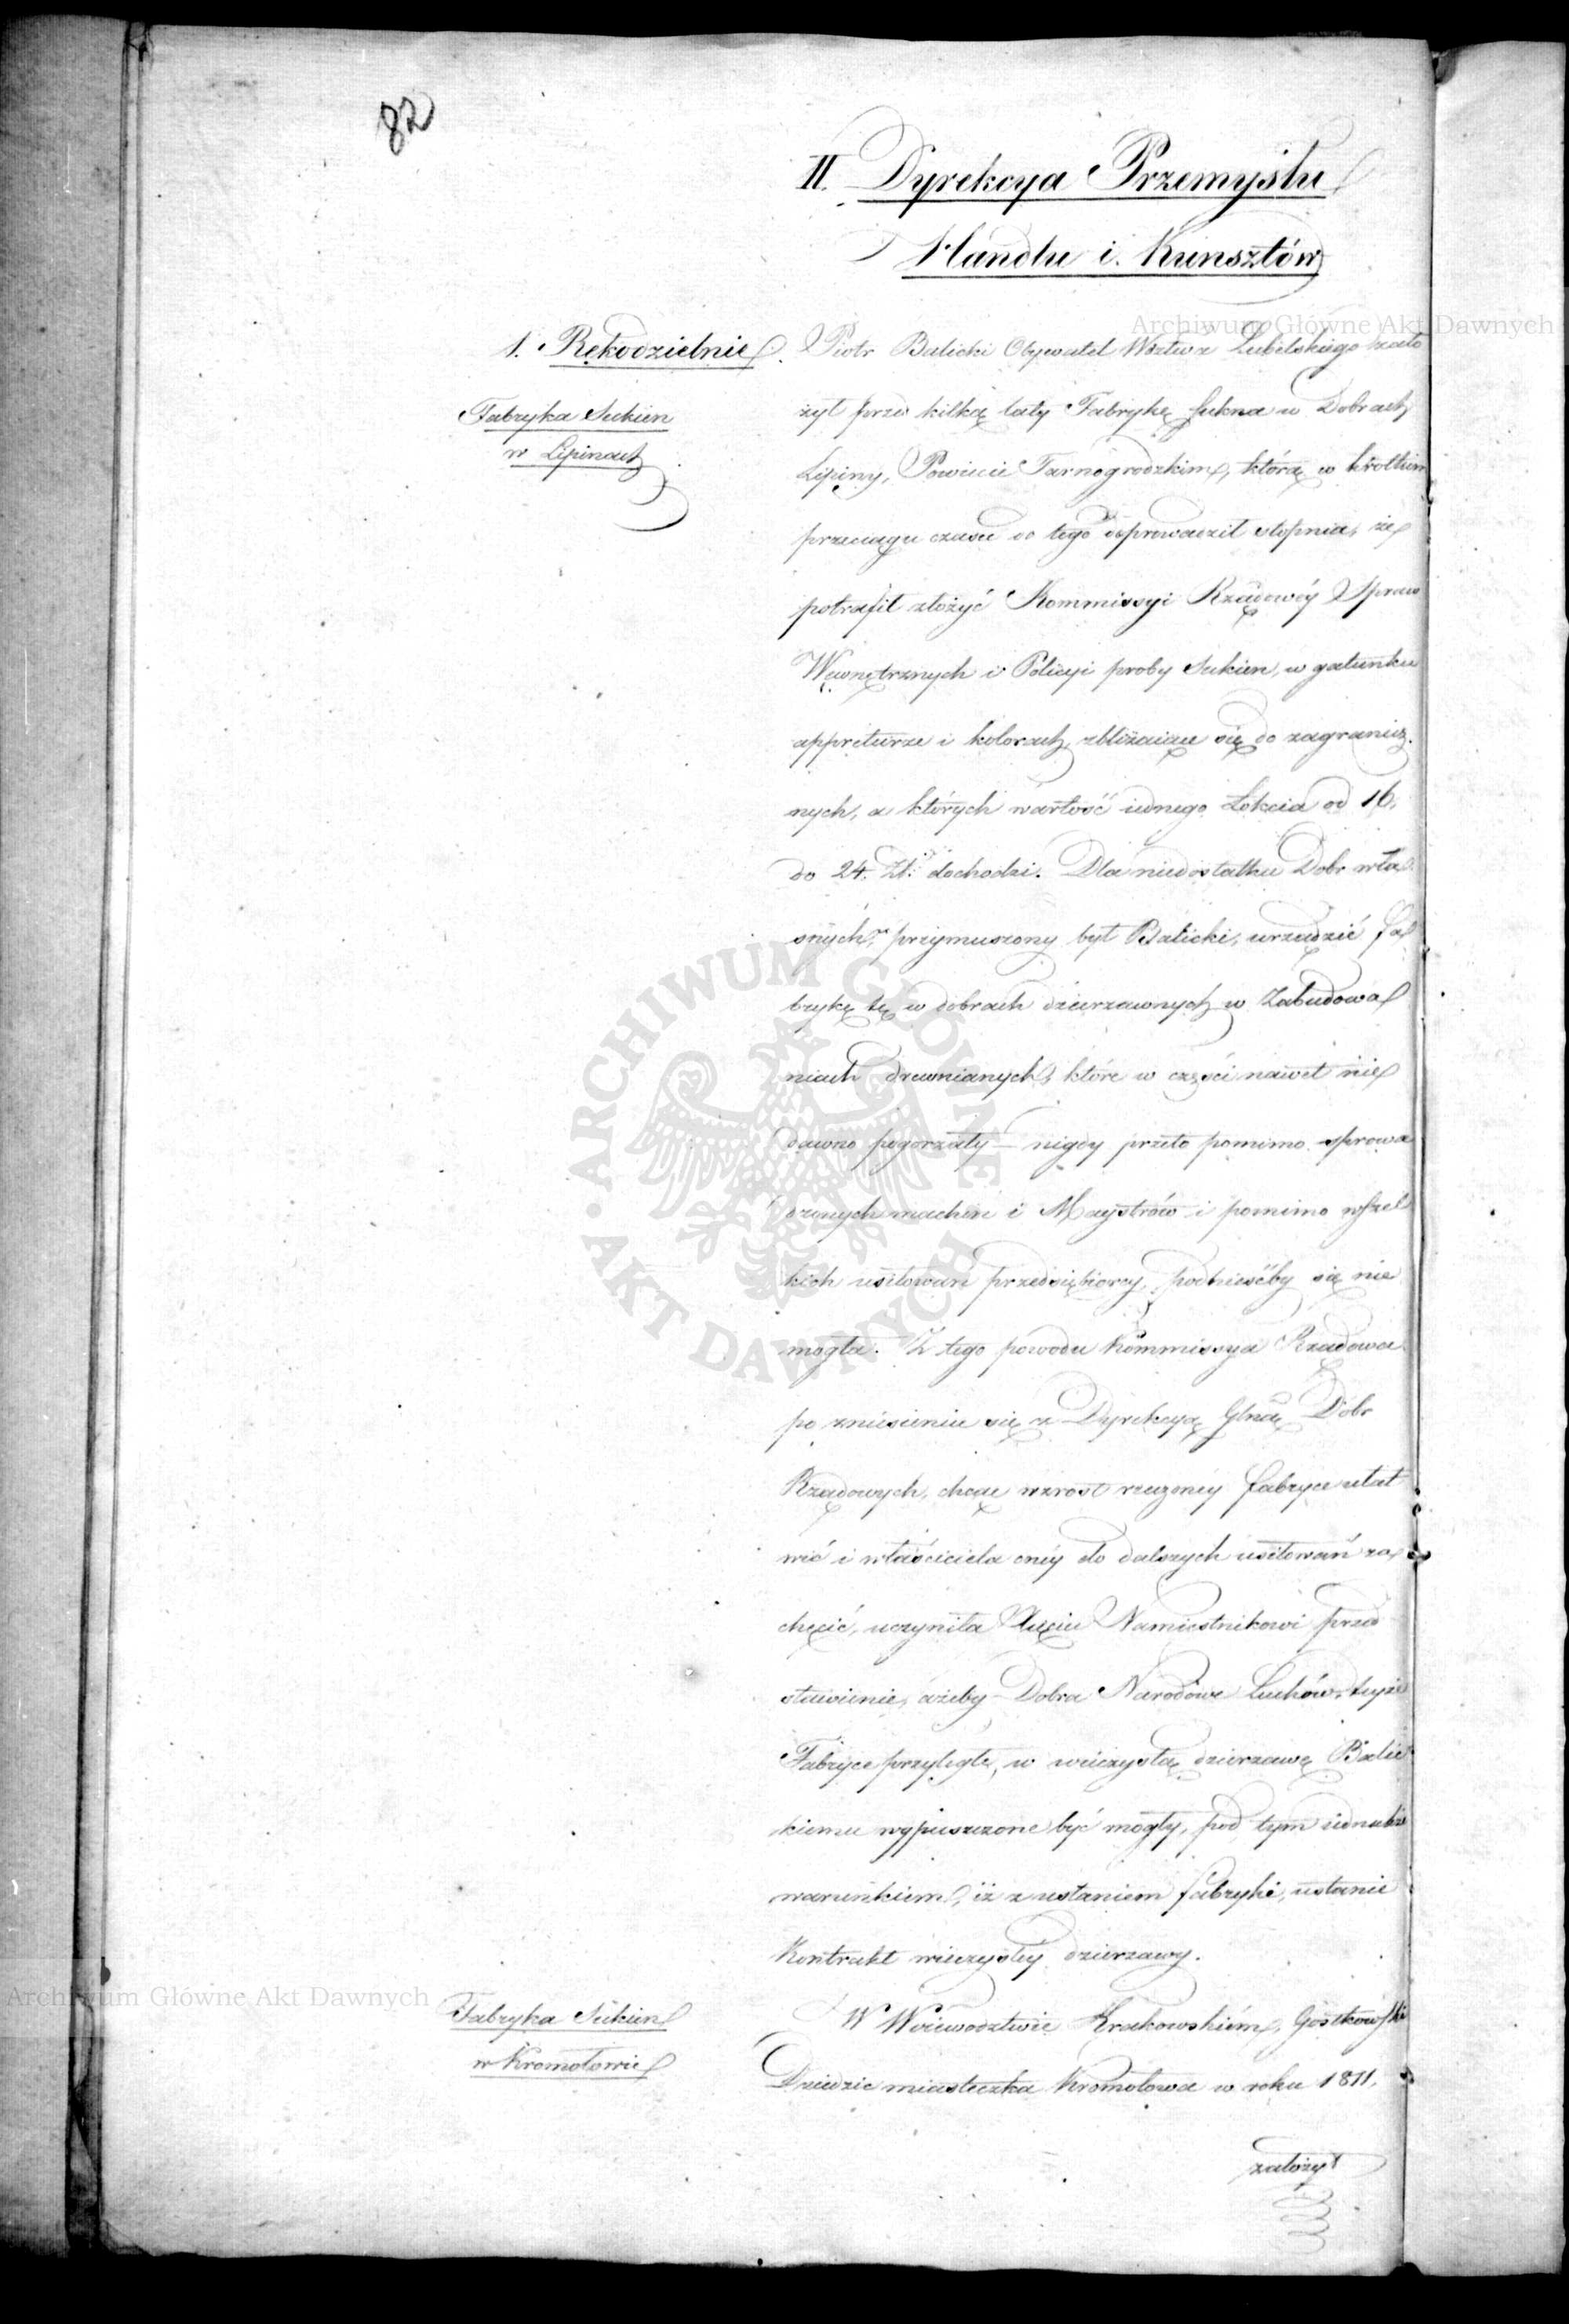 82
II. Dyrekcya Przemysłu
Handlu i Kunsztów
Archiwum Główne Akt Dawnych
1. Rękodzielnie
Fabryka Sukien
w Lipinach
Piotr Balicki Obywatel Wsztwa Lubelskiego zało
żył przed kilką laty Fabrykę sukna w Dobrach
Lipiny, Powiecie Tarnogrodzkim, którą w krotkim
przeciągu czasu do tego doprowadził stopnia, że
potrafił złożyć Kommissyi Rządowéy Spraw
Wewnętrznych i Policyi proby Sukien, w gatunku
appreturze i kolorach zbliżaiące się do zagranicz.
nych, a których wartość iednego Łokcia od 16.
do 24. Zł. dochodzi. Dla niedostatku Dobr wła
snych, przymuszony był Balicki, urządzić fa
brykę tę w dobrach dzierzawnych w Zabudowa
niach drewnianych, które w części nawet nie
dawno pogorzały – nigdy przeto pomimo sprowa
dzonych machin i Maystrów i pomimo wszel
kich usiłowań przedsiębiorcy, podnieśćby się nie
mogła. Z tego powodu Kommissya Rządowa
po zniesieniu się z Dyrekcyą Glną Dobr
Rządowych, chcąc wzrost rzeczonéy fabryce ułat
wić i właściciela onéy do dalszych usiłowań za
chęcić, uczyniła Xięciu Namiestnikowi przed
stawienie, ażeby Dobra Narodowe Luchów, teyże
Fabryce przyległe, w wieczystą dzierzawę Balic
kiemu wypuszczone być mogły, pod tym iednakże
warunkiem, iż z ustaniem fabryki, ustanie
Kontrakt wieczystéy dzierzawy.
Archiwum Główne Akt Dawnych
Fabryka Sukien
w Kromołowie
W Woiewodztwie Krakowskiém, Gostkowski
Dziedzic miasteczka Kromołowa w roku 1811.
założył
ARCHIWUM GŁÓWNE AKT DAWNYCH